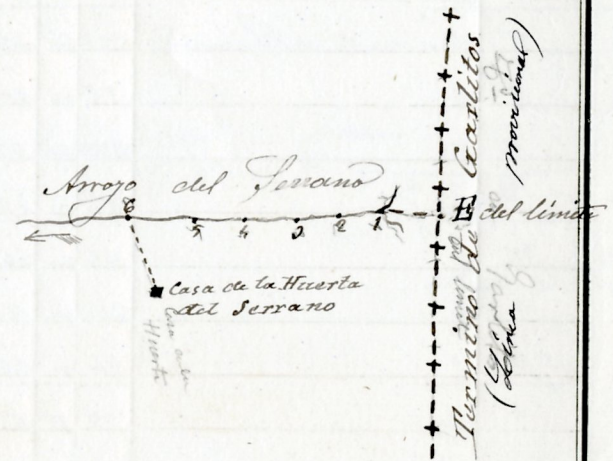 Arroyo del Serrano
6 5 4 3 2 1
E del límite
Casa de la Huerta
del Serrano
Casa de la
Huerta
Termino de Garlitos
(Linea provisional)